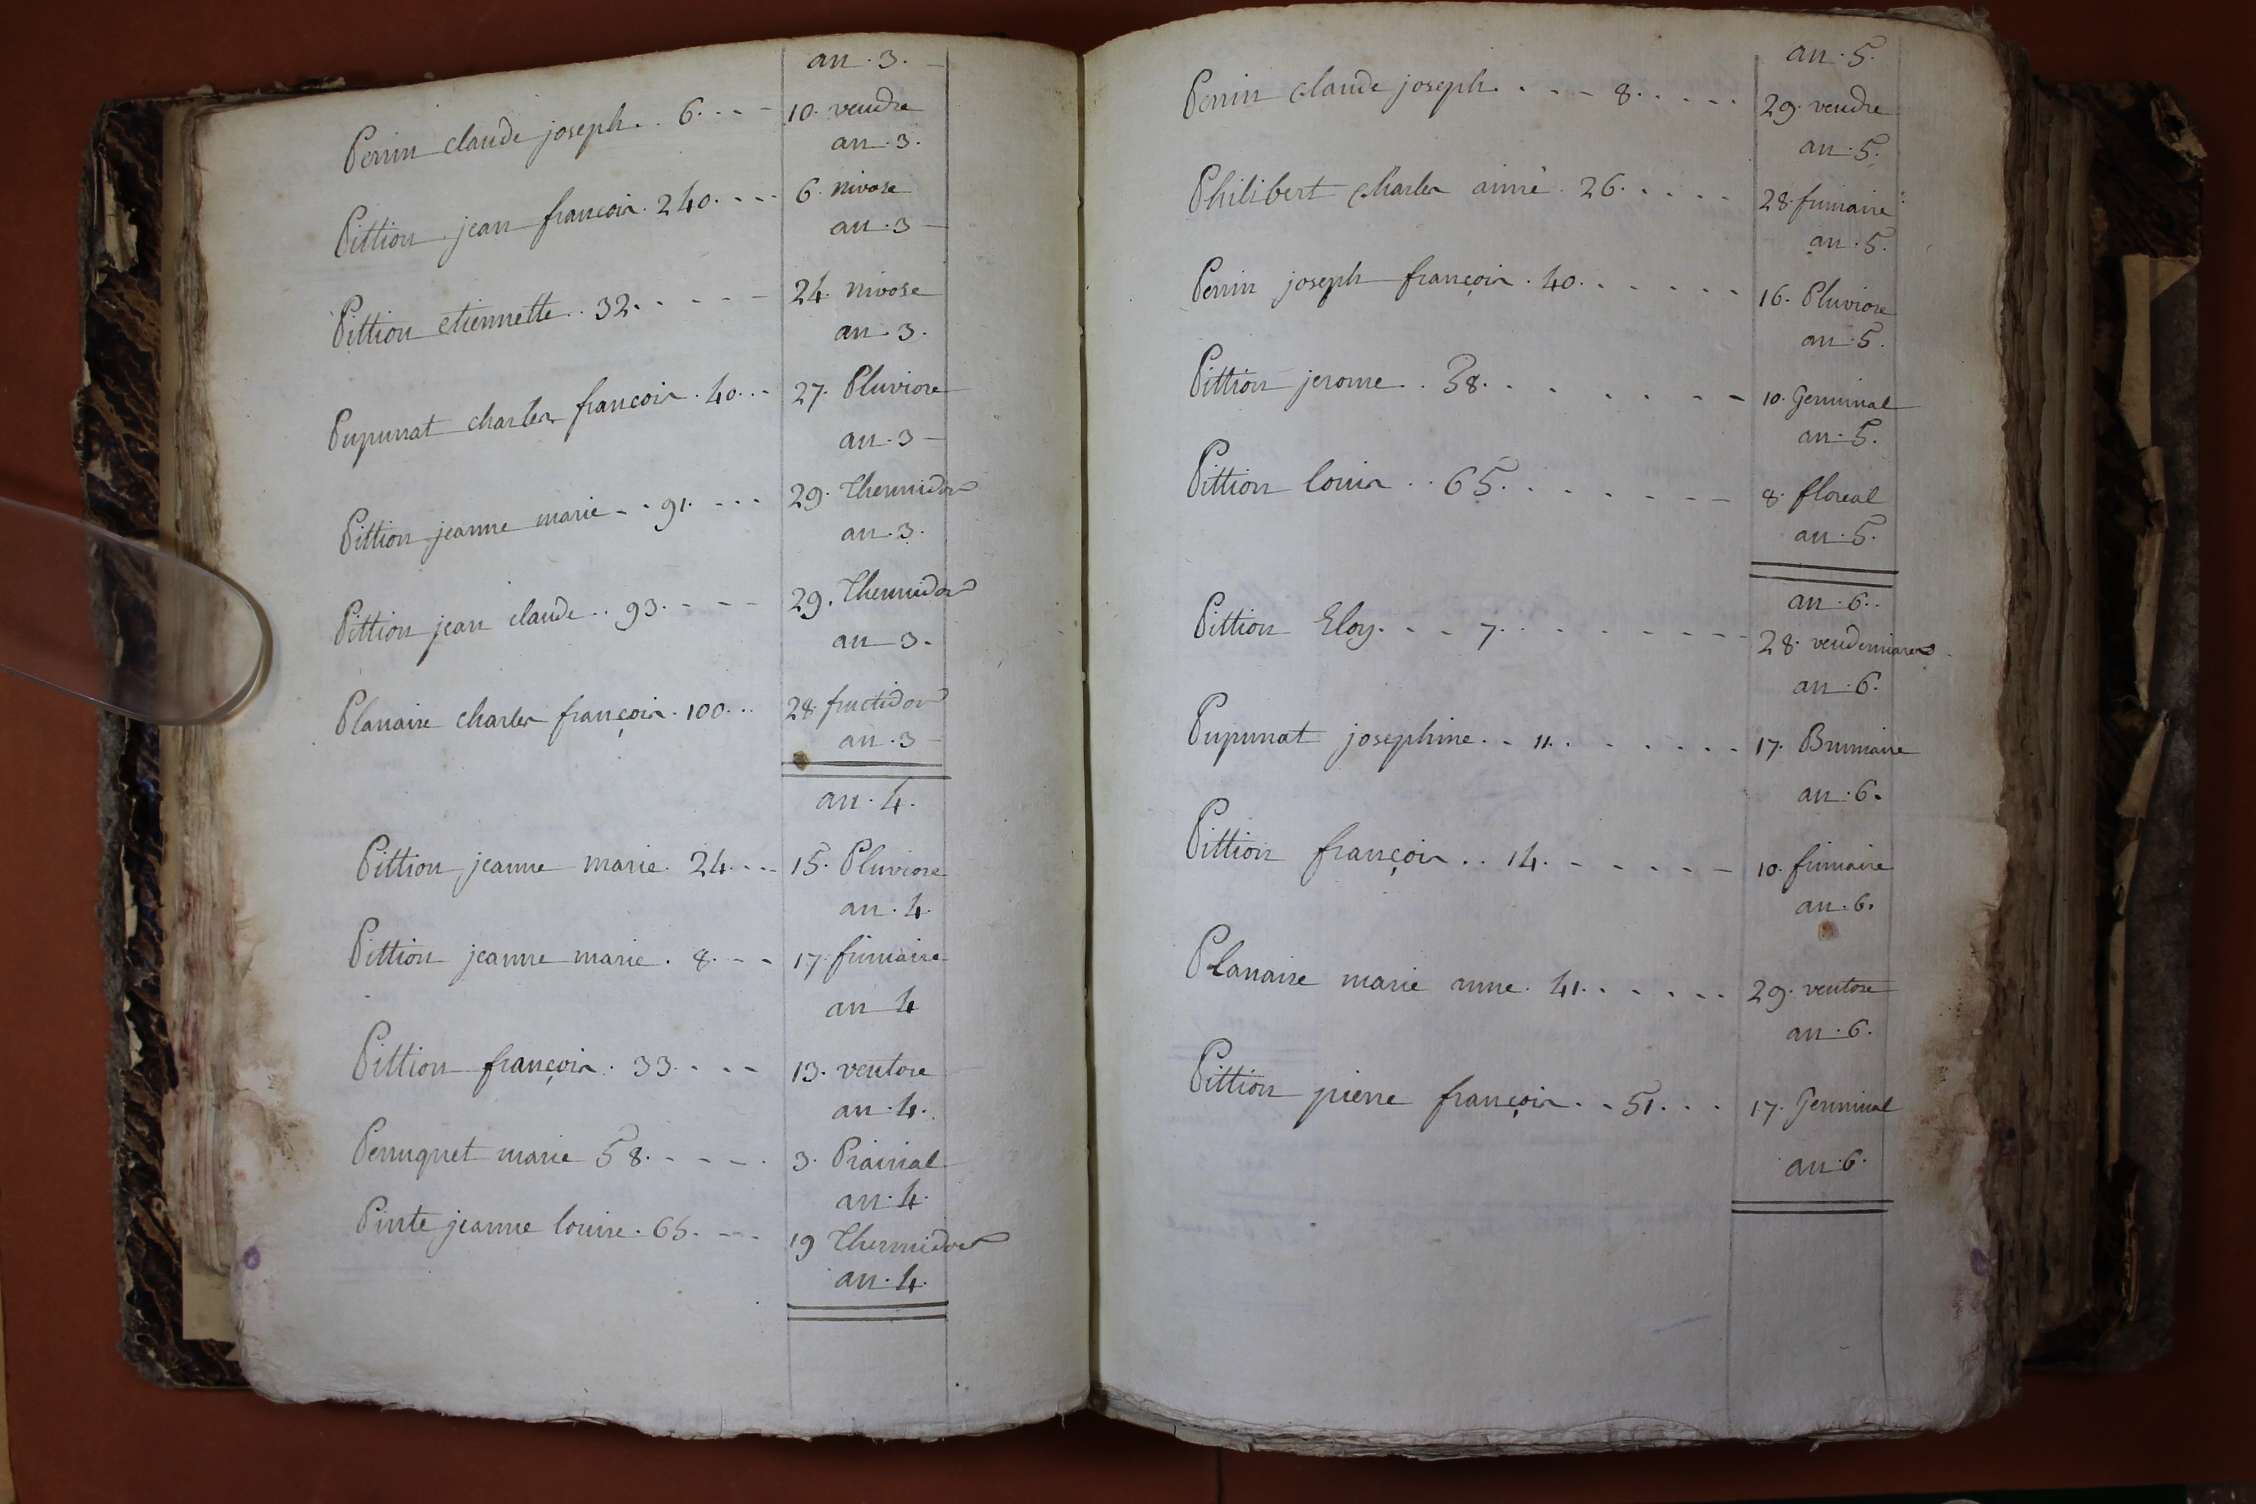 an . 3 .
Perrin claude joseph . . 6 . . . - 10 . vendre
an . 3 .
Pittion jean françois . 240 . . . - 6 . nivose
an . 3
Pittion etiennette . . 32 . . . . - 24 . nivose
an . 3 .
Pupunat charles françois . 40 . . - 27 . Pluviose
an . 3
Pittion jeanne marie - . 91 . . . . 29 . Thermidor
an . 3 .
Pittion jean claude . . 93 . - - - 29 . Thermidor
an 3 .
Planaire charles françois . 100 . . 28 . fructidor
an . 3
an . 4 .
Pittion jeanne marie . 24 . . - 15 . Pluviose
an . 4 .
Pittion jeanne marie . 8 . - - 17 . frimaire
an 4
Pittion françois . 33 . . . - 13 . ventose
an . 4 .
Perruquet marie 58 . - - - . 3 . Prairial
an . 4 .
Pinte jeanne louise . 65 . - - 19 Thermidor
an . 4 .
an . 5 .
Perrin claude joseph . . . - 8 . . . . . 29 . vendre
an . 5 .
Philibert charles aimé . 26 . . . . - 28 . frimaire
an . 5 .
Perrin joseph françois . 40 . . . . . . 16 . Pluviose
an . 5 .
Pittion jerome . . 38 . . . . . . - - 10 . Germinal
an . 5 .
Pittion louis . . 65 . . . . . - - - 8 . floreal
an . 5 .
an . 6 . .
Pittion Eloy . - - 7 . . - - - - - - - 28 . vendemiaire
an . 6 .
Pupunat josephine . - 11 . . . . . . - 17 . Brumaire
an . 6 .
Pittion françois . . 14 . - - - - - - 10 . frimaire
an . 6 .
Planaire marie anne . 41 . . . . . . 29 . ventose
an . 6 .
Pittion pierre françois . - 51 . . . 17 . Germinal
an . 6 .